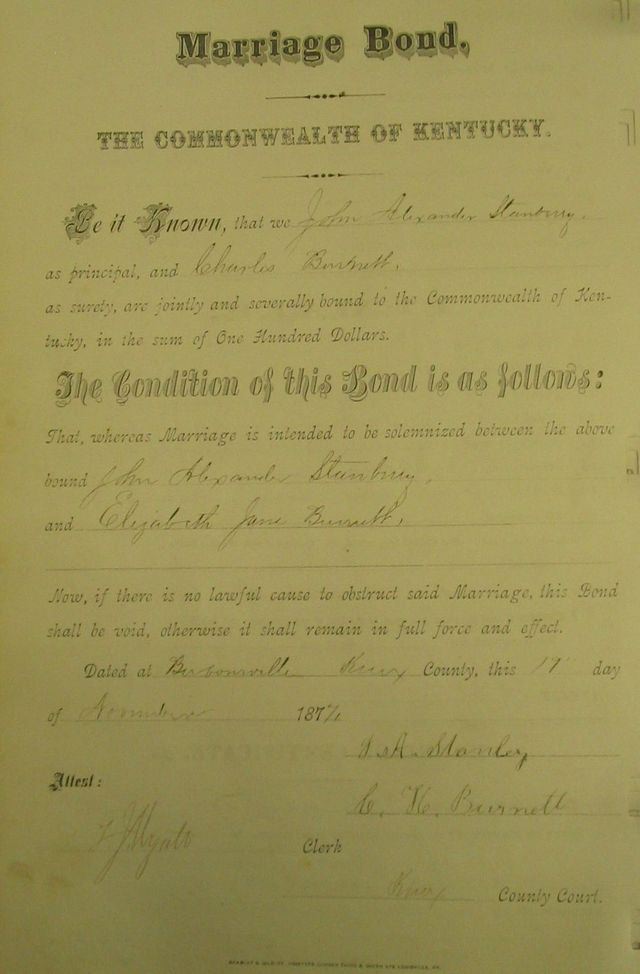 Marriage Bond.
THE COMMONWEALTH OF KENTUCKY.
Be it Known, that we John Alexander Stanbury,
as principal, and Charles Burnett,
as surety, are jointly and severally bound to the Commonwealth of Ken-
tucky, in the sum of One Hundred Dollars.
The Condition of this Bond is as follows:
That, whereas Marriage is intended to be solemnized between the above
bound John Alexander Stanbury,
and Elizabeth Jane Burnett,
Now, if there is no lawful cause to obstruct said Marriage, this Bond
shall be void, otherwise it shall remain in full force and effect.
Dated at Barbourville Knox County, this 17 day
of November 187
J. A. Stanley
Attest:
C. H. Burnett
Clerk
Knox County Court.